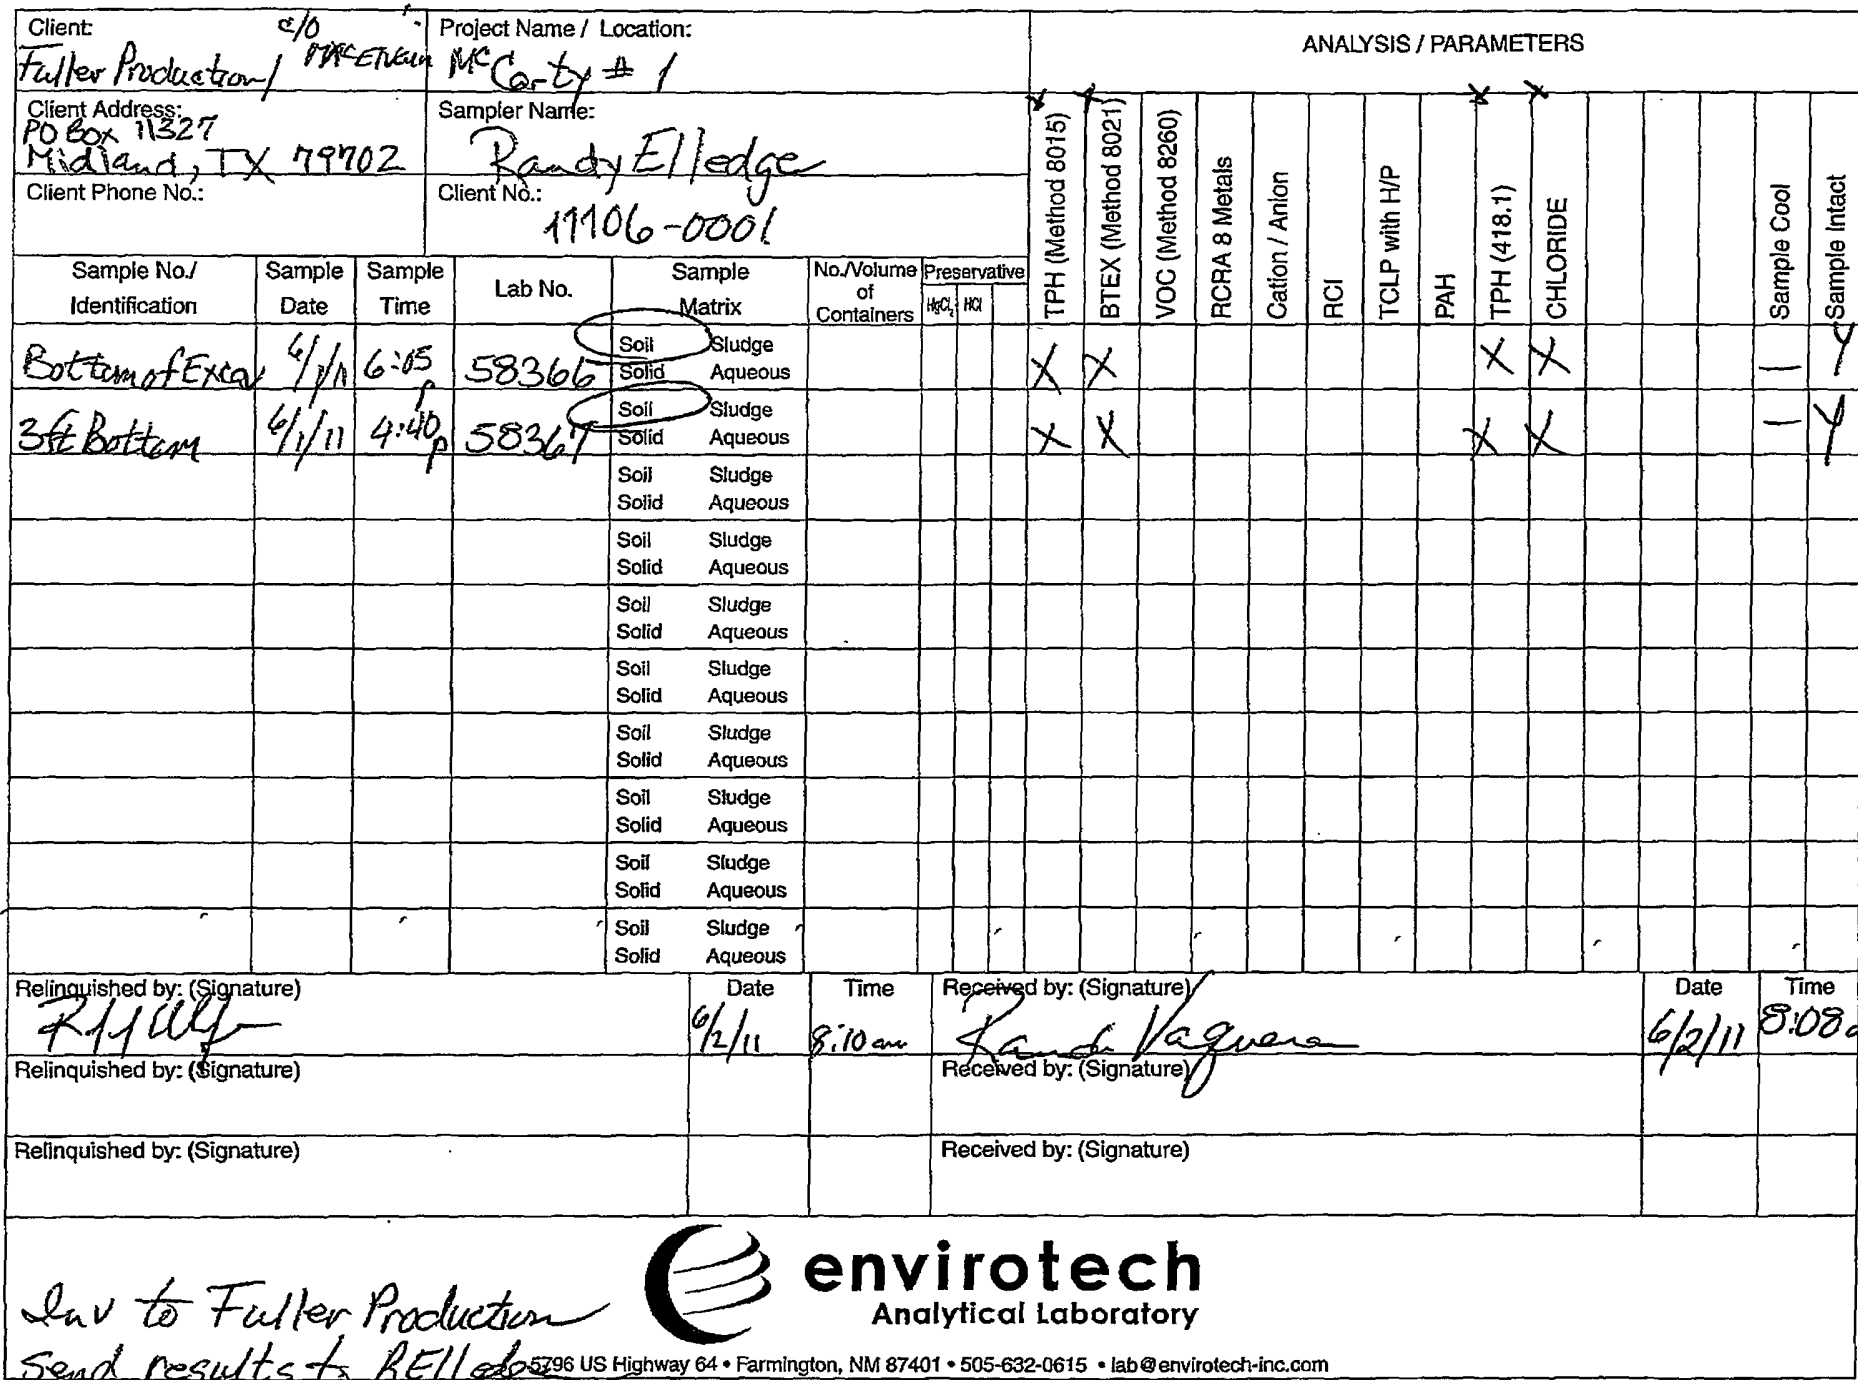 Client: c/o
Fuller Production/
Project Name / Location:
McCarty # 1
ANALYSIS / PARAMETERS
Client Address:
PO Box 11327
Midland, TX 79702
Sampler Name:
Randy Elledge
Client Phone No.:
Client No.:
11106-0001
Sample No./ Identification
Sample Date
Sample Time
Lab No.
Sample Matrix
No./Volume of Containers
Preservative
HgCl2 HCl
TPH (Method 8015)
BTEX (Method 8021)
VOC (Method 8260)
RCRA 8 Metals
Cation / Anion
RCI
TCLP with H/P
PAH
TPH (418.1)
CHLORIDE
Sample Cool
Sample Intact
Bottom of Excav 6/1/11 6:05 p 58366 Soil Sludge X X X X — Y
Solid Aqueous
3ft Bottom 6/1/11 4:40 p 58367 Soil Sludge X X X X — Y
Solid Aqueous
Soil Sludge
Solid Aqueous
Soil Sludge
Solid Aqueous
Soil Sludge
Solid Aqueous
Soil Sludge
Solid Aqueous
Soil Sludge
Solid Aqueous
Soil Sludge
Solid Aqueous
Soil Sludge
Solid Aqueous
Soil Sludge
Solid Aqueous
Relinquished by: (Signature) Date Time Received by: (Signature) Date Time
6/2/11 8:10 am 6/2/11 8:08a
Relinquished by: (Signature) Received by: (Signature)
Relinquished by: (Signature) Received by: (Signature)
envirotech
Analytical Laboratory
Inv to Fuller Production
Send results to RElledge
5796 US Highway 64 • Farmington, NM 87401 • 505-632-0615 • lab@envirotech-inc.com